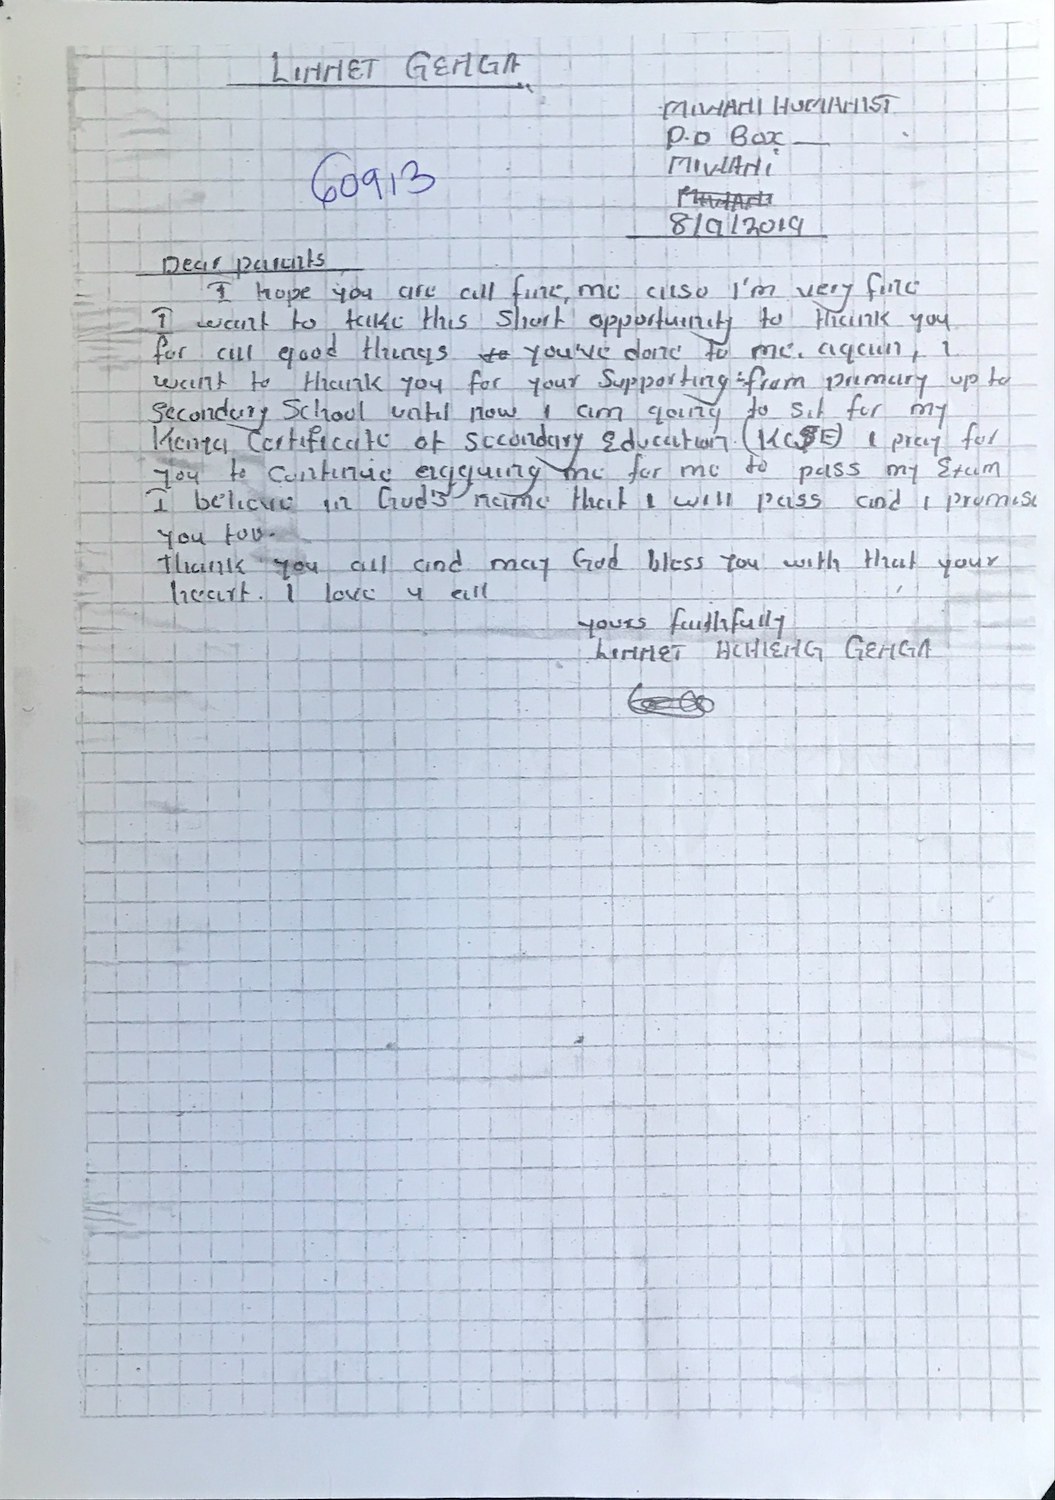 LINNET GENGA
MIWANI HUMANIST
P.O Box
MIWANI
60913
MIWANI
8/9/2019
Dear parents
I hope you are all fine, me also I'm very fine
I want to take this short opportunity to thank you
for all good things to you've done to me. again, I
want to thank you for your supporting from primary up to
secondary School until now I am going to sit for my
Kenya Certificate of Secondary Education (KCSE) I pray for
you to continue me for me to pass my Exam
I believe in God's name that I will pass and I promise
you too.
Thank you all and may God bless you with that your
heart. I love u all
yours faithfully
LINNET ACHIENG GENGA